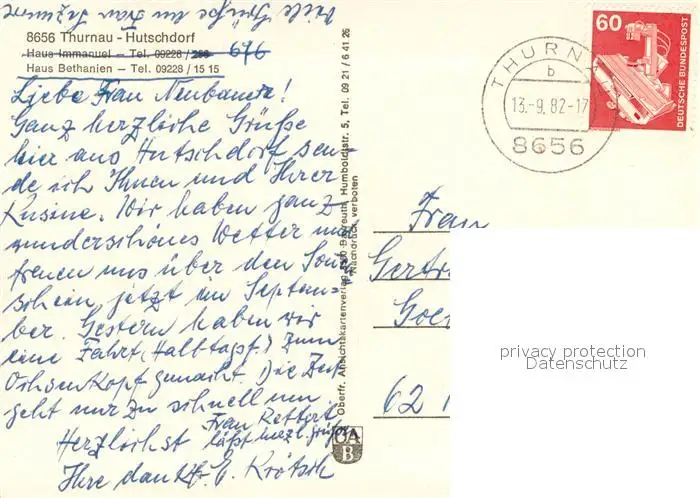 viele Grüße an Frau
8656 Thurnau - Hutschdorf
Haus Immanuel – Tel. 09228/286 676
Haus Bethanien – Tel. 09228/15 15
Liebe Frau Neubauer!
Ganz herzliche Grüße
hier aus Hutschdorf sen-
de ich Ihnen und Ihrer
Kusine. Wir haben ganz
wunderschönes Wetter und
freuen uns über den Son-
schein jetzt im Septem-
ber. Gestern haben wir
eine Fahrt (Halbtagsf.) zum
Ochsenkopf gemacht. Die Zeit
geht nur zu schnell um
Frau
Herzlichst läßt herzl. grüßen
Ihre dankb. E.
Oberfr. Ansichtskartenverlag 8580 Bayreuth, Humboldtstr. 5, Tel. 09 21 / 6 41 26
Nachdruck verboten
OA
B
THURNA
b
13.-9.82-17
8656
60
DEUTSCHE BUNDESPOST
Frau
Gertr
Goe
62 1
privacy protection
Datenschutz